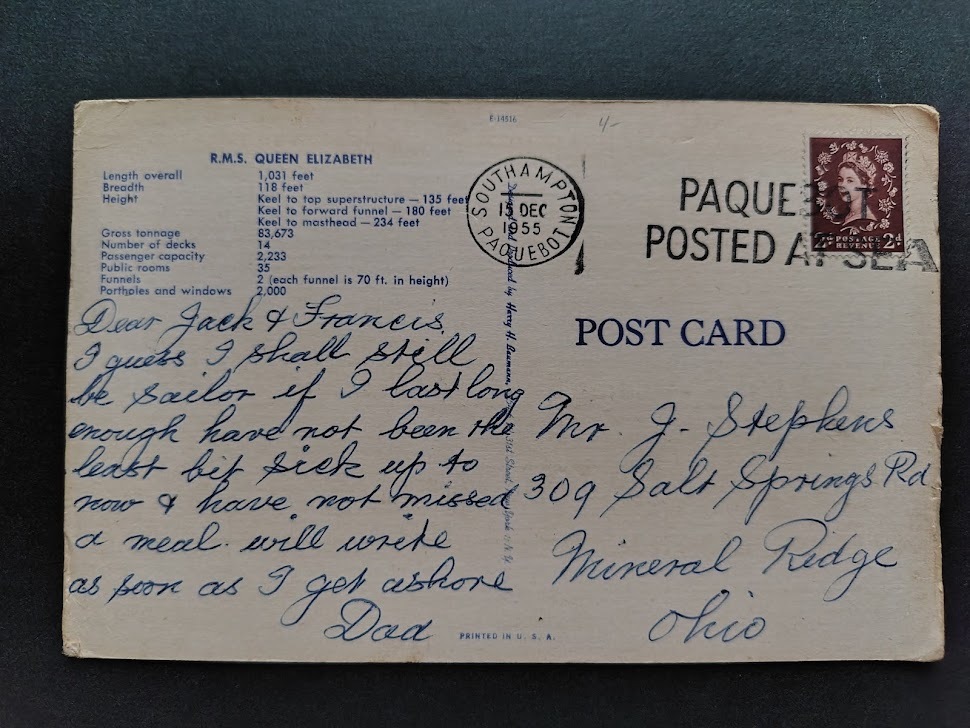 E-14516
4/-
R.M.S. QUEEN ELIZABETH
Length overall 1,031 feet
Breadth 118 feet
Height Keel to top superstructure — 135 feet
Keel to forward funnel — 180 feet
Keel to masthead — 234 feet
Gross tonnage 83,673
Number of decks 14
Passenger capacity 2,233
Public rooms 35
Funnels 2 (each funnel is 70 ft. in height)
Portholes and windows 2,000
Dear Jack & Francis,
I guess I shall still
be sailor if I last long
enough have not been the
least bit sick up to
now & have not missed
a meal. will write
as soon as I get ashore
Dad
PRINTED IN U. S. A.
by Harry H. Baumann, 31st Street, N.Y.
SOUTHAMPTON
15 DEC
1955
PAQUEBOT
PAQUEBOT
POSTED AT SEA
2d POSTAGE 2d
REVENUE
POST CARD
Mr. J. Stephens
309 Salt Springs Rd
Mineral Ridge
Ohio